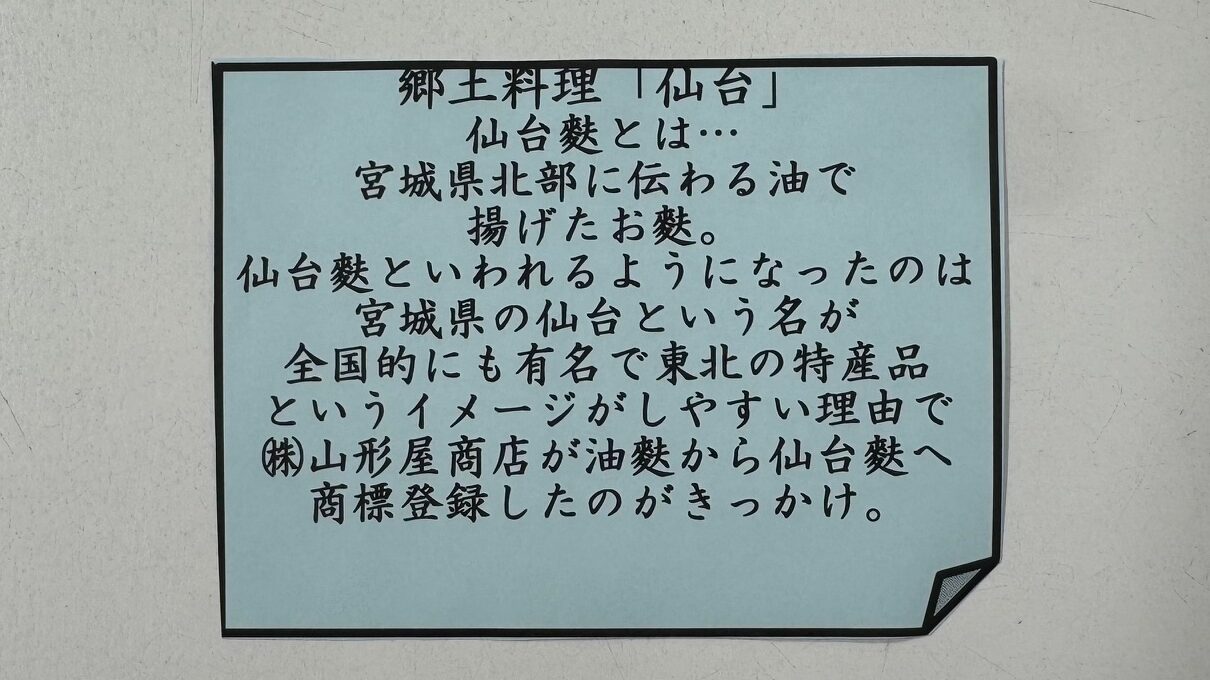 郷土料理「仙台」
仙台麩とは…
宮城県北部に伝わる油で
揚げたお麩。
仙台麩といわれるようになったのは
宮城県の仙台という名が
全国的にも有名で東北の特産品
というイメージがしやすい理由で
㈱山形屋商店が油麩から仙台麩へ
商標登録したのがきっかけ。